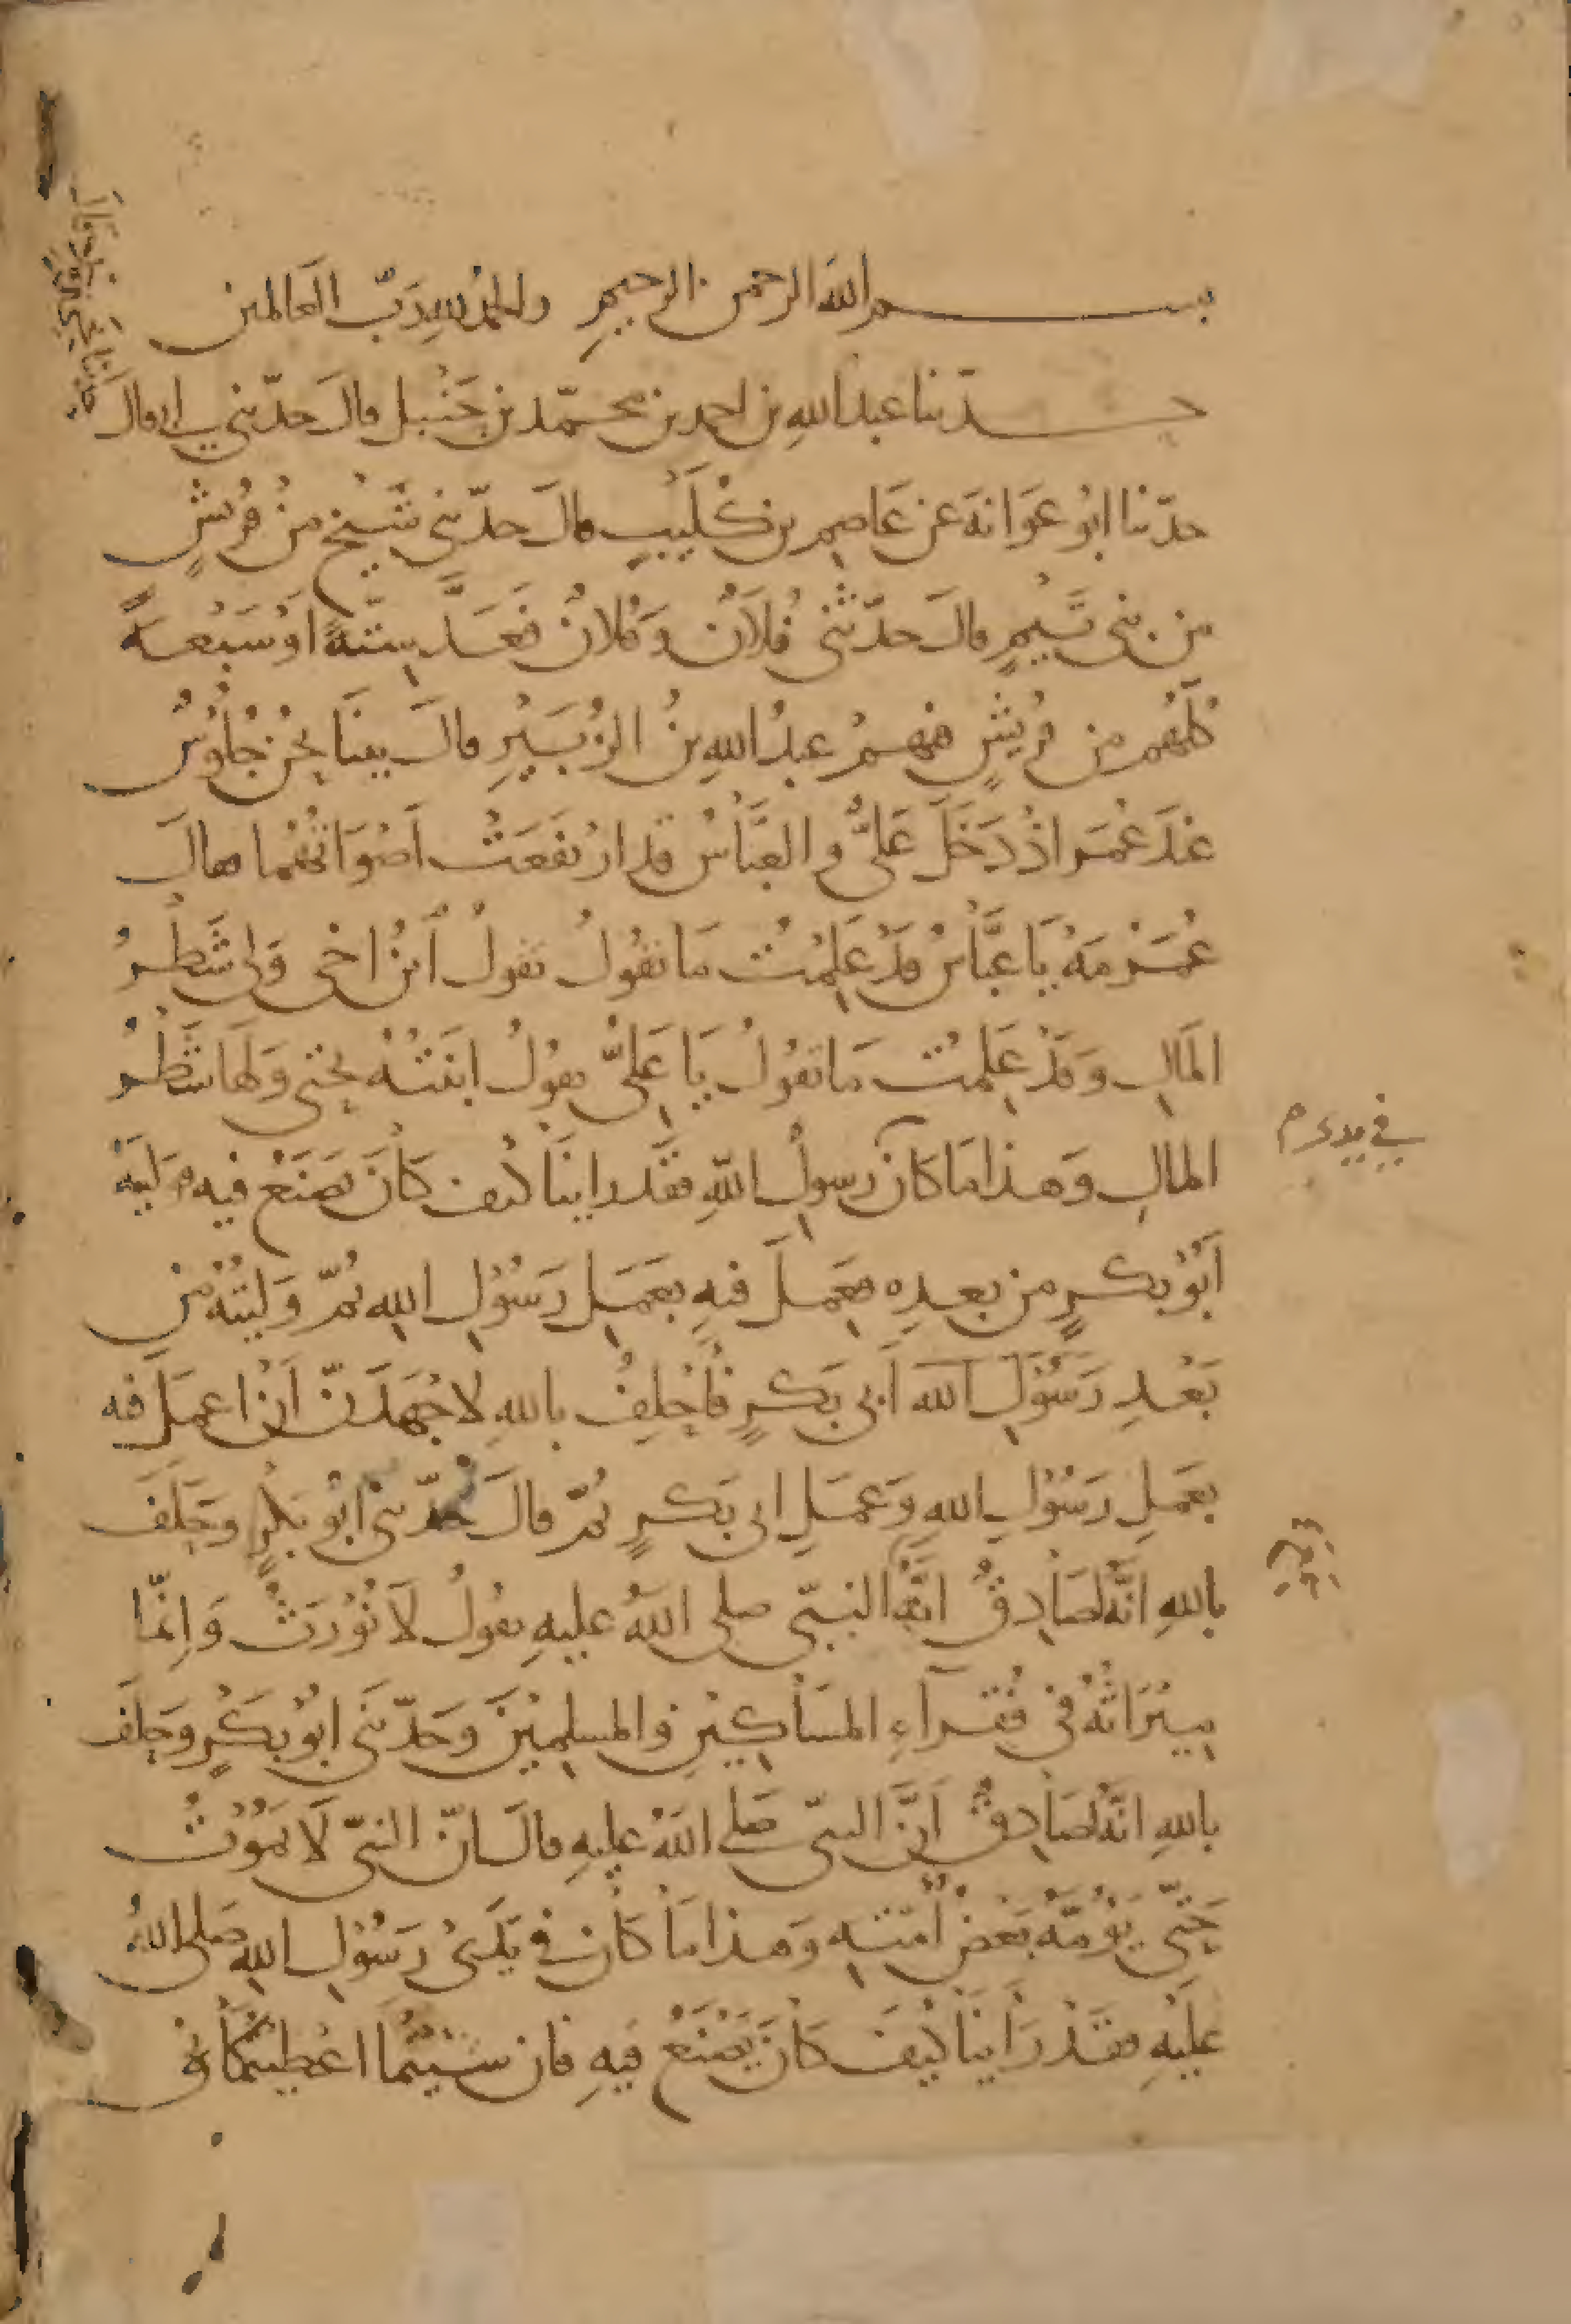 بسم الله الرحمن الرحيم والحمد لله رب العالمين
حدثنا عبد الله بن احمد بن محمد بن حنبل قال حدثني ابي قال
حدثنا ابو عوانة عن عاصم بن كليب قال حدثني شيخ من قريش
من بني تيم قال حدثني فلان وفلان فعد ستة او سبعة
كلهم من قريش فيهم عبد الله بن الزبير قال بينا نحن جلوس
عند عمر اذ دخل علي والعباس قد ارتفعت اصواتهما فقال
عمر مه يا عباس قد علمت ما تقول تقول ابن اخي ولي شطر
المال وقد علمت ما تقول يا علي تقول ابنته تحتي ولها شطر
المال وهذا ما كان رسول الله فقد راينا كيف كان يصنع فيه وليه
في يدي
ابو بكر من بعده فعمل فيه بعمل رسول الله ثم وليته من
بعد رسول الله ابي بكر فاحلف بالله لاجهدن ان اعمل فيه
بعمل رسول الله وعمل ابي بكر ثم قال حدثني ابو بكر وحلف
بالله انه لصادق انه النبي صلى الله عليه يقول لا نورث وانما
ميراثه في فقرآء المساكين والمسلمين وحدثني ابو بكر وحلف
بالله انه لصادق ان النبي صلى الله عليه قال ان النبي لا يموت
حتى يؤمه بعض امته وهذا ما كان في يدي رسول الله صلى الله
عليه فقد راينا كيف كان يصنع فيه فان شيتما اعطيتكما